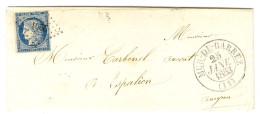 Monsieur
Monsieur Carbonel avocat
à Espalion
Aveyron
MUR-DE-BARREZ
25
JANV.
(11)